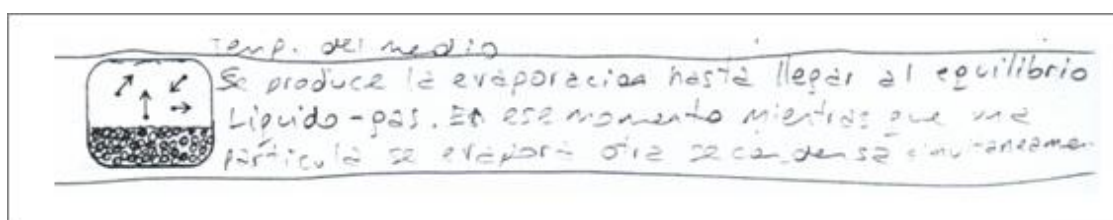 Temp. del medio
Se produce la evaporacion hasta llegar al equilibrio
Liquido-gas. En ese momento mientras que una
particula se evapora otra se condensa simultaneamen